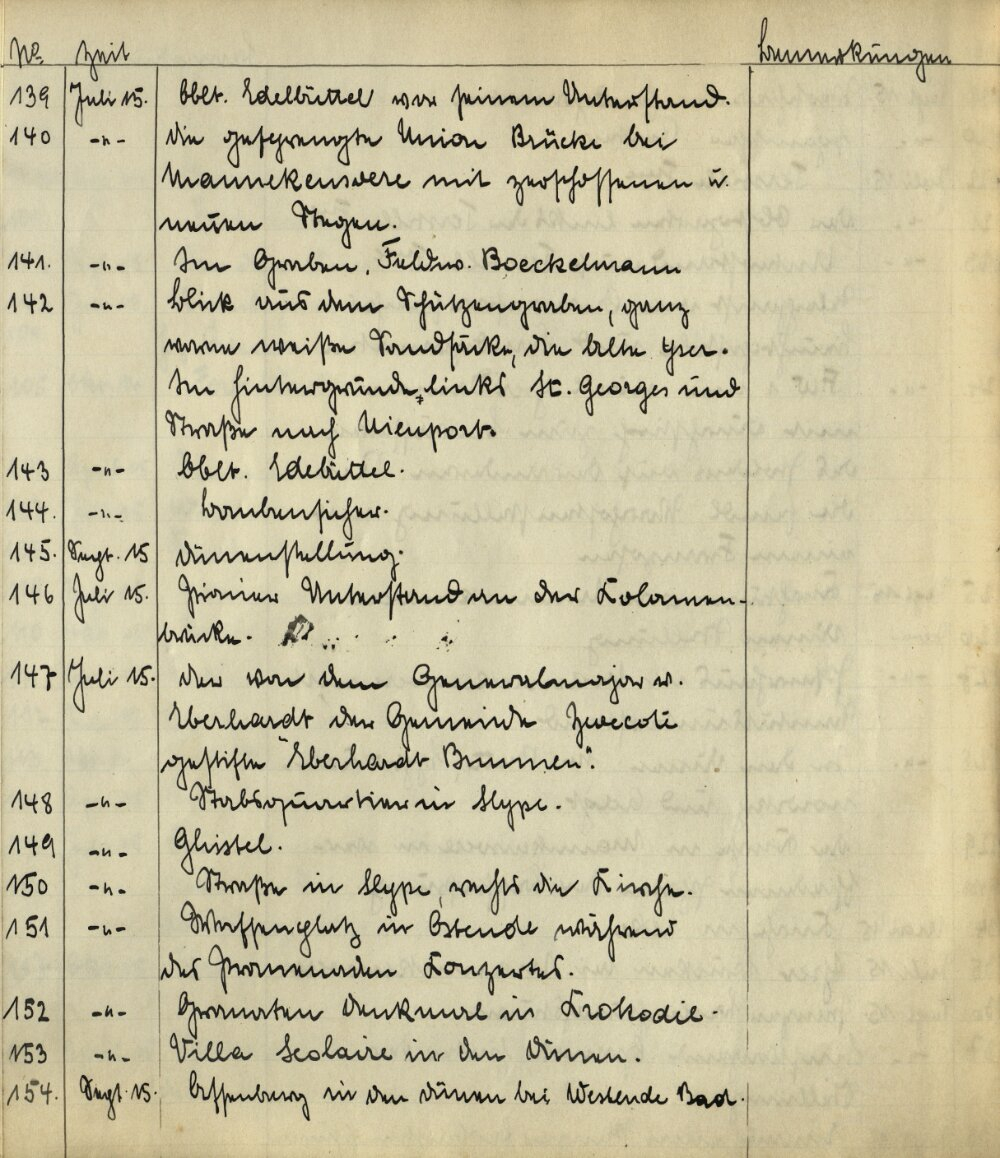 No. Zeit Bemerkungen
139 Juli 15. Oblt. Edelbüttel vor seinem Unterstand.
140 -"- Die gesprengte Union Brücke bei
Mannekensvere mit zerschossenen u.
neuen Stegen.
141. -"- Im Graben, Feldw. Boeckelmann
142 -"- Blick aus dem Schützengraben, ganz
vorne weiße Sandsäcke, die alte Yser.
Im Hintergrunde links St. Georges und
Straße nach Nieuport.
143 -"- Oblt. Edebüttel.
144. -"- Bombensicher.
145. Sept. 15 Dünenstellung.
146 Juli 15. Pionier Unterstand an der Kolonnen-
brücke.
147 Juli 15. Der von dem Generalmajor v.
Eberhardt der Gemeinde Zevecote
gestifte "Eberhardt Brunnen".
148 -"- Stabsquartier in Slype.
149 -"- Ghistel.
150 -"- Straße in Slype, rechts die Kirche.
151 -"- Waffenplatz in Ostende während
des Promenaden Konzertes.
152 -"- Granaten Denkmal in Krokodil.
153 -"- Villa Scolaire in den Dünen.
154. Sept. 15. Affenburg in den Dünen bei Westende Bad.